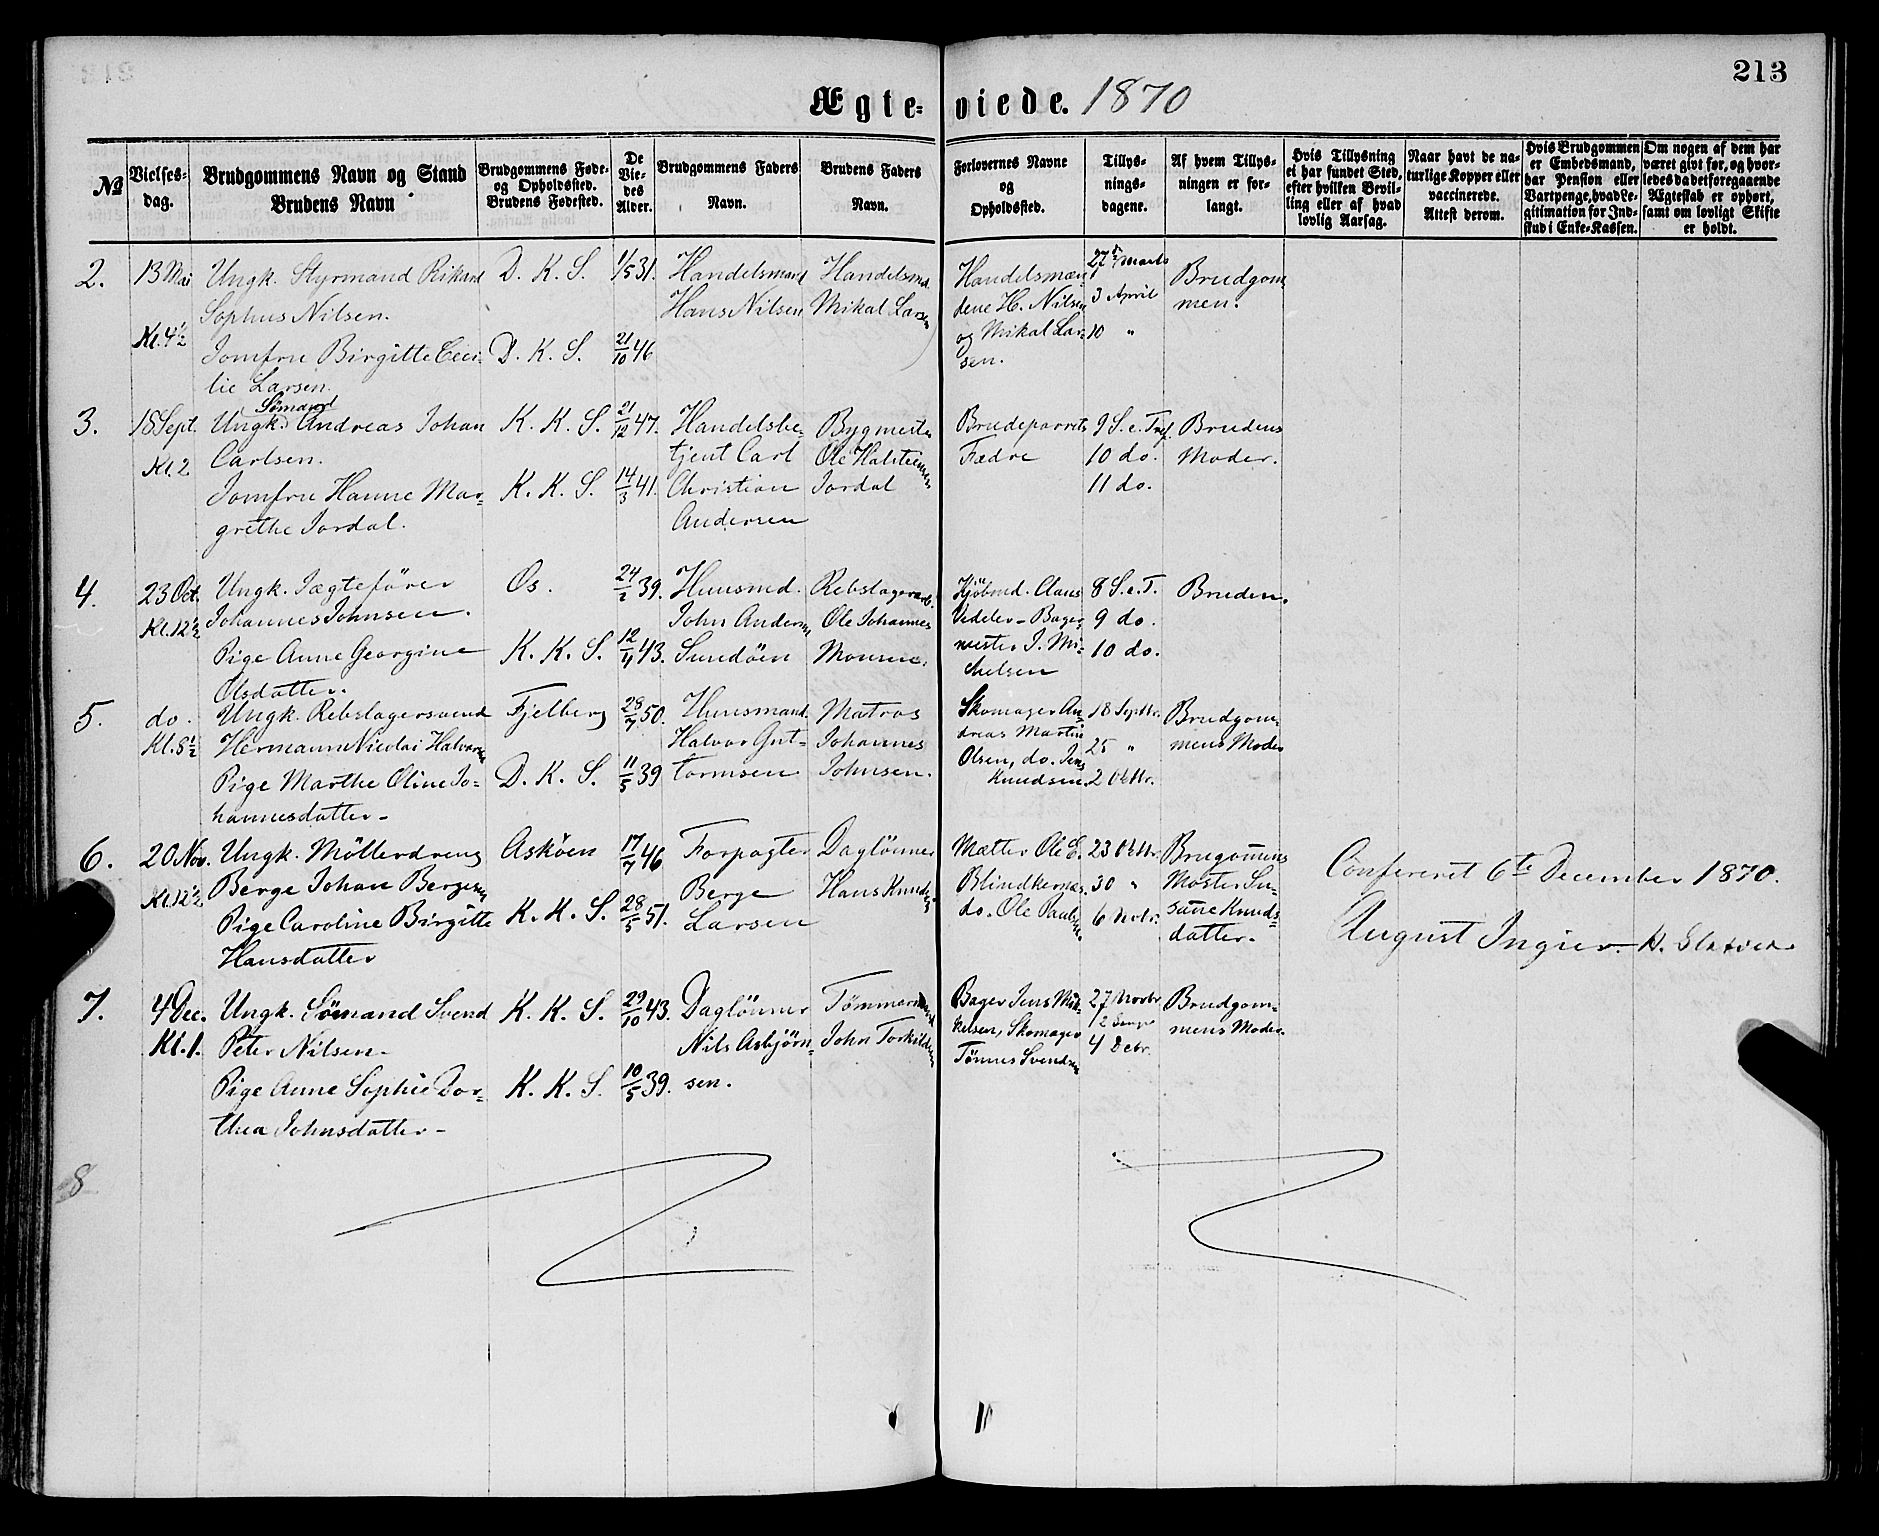 213
Ægte-viede. 1870
No
Vielses-
dag.
Brudgommens Navn og Stand
Brudens Navn
Brudgommens Føde-
og Opholdssted.
Brudens Fødested.
De
Vie-
des
Alder.
Brudgommens Faders
Navn.
Brudens Faders
Navn.
Forlovernes Navne
og
Opholdssted.
Tillys-
nings-
dagene.
Af hvem Tillys-
ningen er for-
langt.
Hvis Tillysning
ei har fundet Sted,
efter hvilken Bevil-
ling eller af hvad
lovlig Aarsag.
Naar havt de na-
turlige Kopper eller
vaccinerede.
Attest derom.
Hvis Brudgommen
er Embedsmand,
har Pension eller
Vartpenge, hvad Le-
gitimation for Ind-
skud i Enke-Kassen.
Om nogen af dem har
været givt før, og hvor-
ledes da det foregaaende
Ægteskab er ophørt,
samt om lovligt Skifte
er holdt.
2.
13 Mai
Kl. 4½
Ungk. Styrmand Rikard
Sophus Nilsen.
Jomfru Birgitte Ceci-
lie Larsen.
D. K. S.
D. K. S.
1/5 31.
21/10 46
Handelsmand
Hans Nilsen
Handelsmd.
Mikal Larsen
Handelsmæn
dene H. Nilsen
og Mikal Lar-
sen.
27 Marts
3 April
10 "
Brudgom
men.
3.
18 Sept.
Kl. 2
Sömand
Ungk. Andreas Johan
Carlsen.
Jomfru Hanne Mar-
grethe Jordal.
K. K. S.
K. K. S.
21/12 47.
14/3 41.
Handelsbe-
tjent Carl
Christian
Andersen
Bygmester
Ole Halsteinsen
Jordal
Brudeparrets
Fædre
9 S. e. Tref.
10 do.
11 do.
Brudens
Moder.
4.
23 Oct.
Kl. 12½
Ungk. Jægtefører
Johannes Johnsen.
Pige Anne Georgine
Olsdatter.
Os.
K. K. S.
24/2 39.
12/4 43.
Huusmd.
John Andersen
Sundöen
Rebslagerarb.
Ole Johannes
Monsen.
Kjöbmd. Claus
Vedeler - Bager
mester J. Mi-
chelsen
8 S. e. T.
9 do.
10 do.
Bruden.
5.
do.
Kl. 5½
Ungk. Rebslagersvend
Hermann Nicolai Halvorsen
Pige Marthe Oline Jo-
hannesdatter-
Fjelberg
D. K. S.
28/7 50.
11/5 39
Huusmand
Halvor Gut-
tormsen
Matros
Johannes
Johnsen.
Skomager An-
dreas Martin
Olsen, do. Jens
Knudsen.
18 Septbr.
25 "
2 Oktbr.
Brudgom-
mens Moder
6.
20 Nov.
Kl. 12½
Ungk. Möllerdreng
Berge Johan Bergesen
Pige Caroline Birgitte
Hansdatter
Asköen
K. K. S.
17/7 46
28/5 51.
Forpagter
Berge
Larsen
Daglönner
Hans Knudsen
Mætter Ole E.
Blindkernæs.
do. Ole Paulsen.
23 Oktbr.
30 "
6 Novbr.
Brugomens
Moster Su-
sane Knuds-
datter.
Confereret 6te December 1870.
August Ingier.
7.
4 Dec.
Kl. 1.
Ungk. Sömand Svend
Peter Nilsen.
Pige Anne Sophie Dor-
thea Johnsdatter-
K. K. S.
K. K. S.
29/10 43.
10/5 39.
Daglönner
Nils Asbjörn-
sen.
Tömmermand
John Torkildsen
Bager Jens Mik-
kelsen, Skomager
Tönnes Svendsen
27 Novbr.
4 Decbr.
Brudgom-
mens Moder.
8